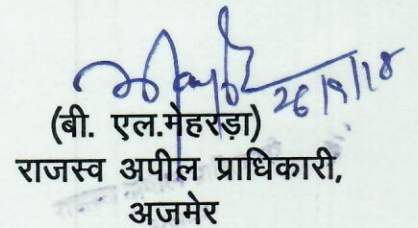 26/9/18
(बी. एल.मेहरड़ा)
राजस्व अपील प्राधिकारी,
अजमेर